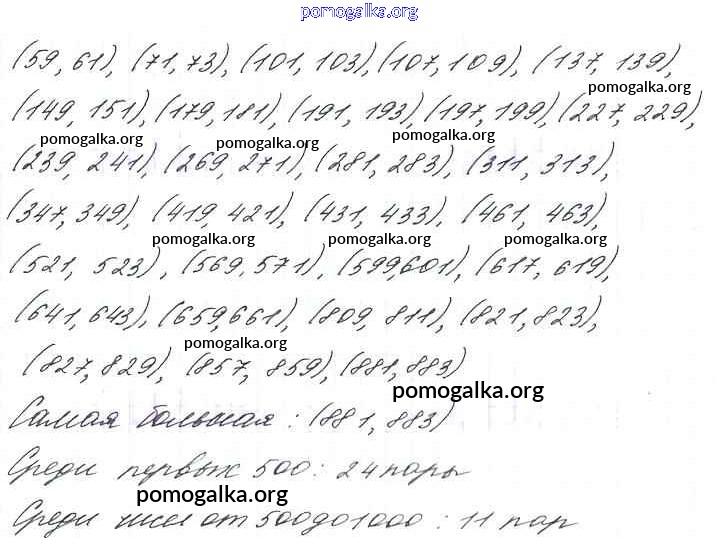 pomogalka.org
(59, 61), (71, 73), (101, 103), (107, 109), (137, 139),
pomogalka.org
(149, 151), (179, 181), (191, 193), (197, 199), (227, 229),
pomogalka.org pomogalka.org pomogalka.org
(239, 241), (269, 271), (281, 283), (311, 313),
(347, 349), (419, 421), (431, 433), (461, 463),
pomogalka.org pomogalka.org pomogalka.org
(521, 523), (569, 571), (599, 601), (617, 619),
(641, 643), (659, 661), (809, 811), (821, 823),
pomogalka.org
(827, 829), (857, 859), (881, 883)
pomogalka.org
Самая большая: (881, 883)
Среди первых 500: 24 пары
pomogalka.org
Среди чисел от 500 до 1000: 11 пар